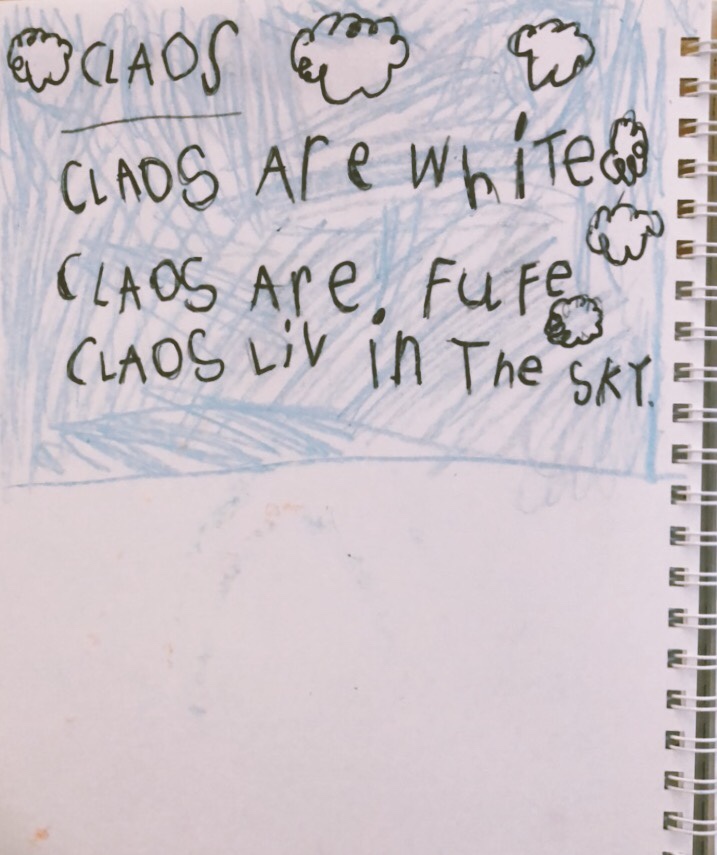 CLAOS
CLAOS Are white
CLAOS Are. FuFe
CLAOS Liv in The SKY.